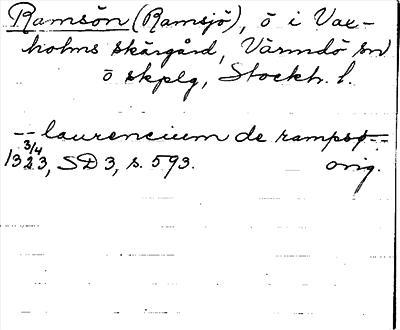 Ramsön (Ramsjö), ö i Vax-
holms skärgård, Värmdö sn
ö skplg, Stockh. l.
-- laurencium de rampsø --
3/4
1323, SD 3, s. 593. orig.